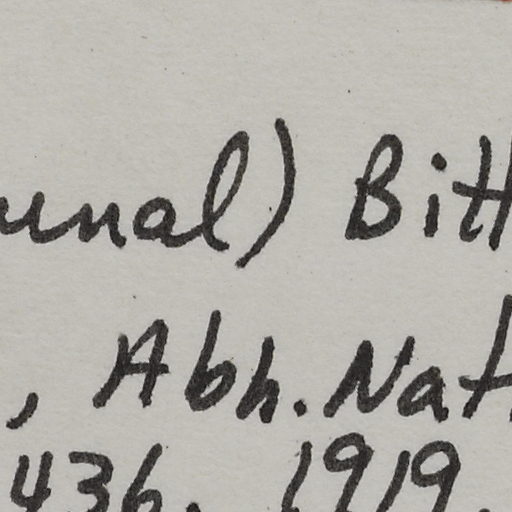 unal) Bitt
, Abh. Nat
436. 1919.